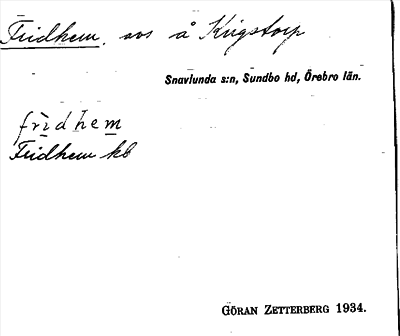 Fridhem, sos å Krigstorp
Snavlunda s:n, Sundbo hd, Örebro län.
frìdhem
Fridhem kb
GÖRAN ZETTERBERG 1934.